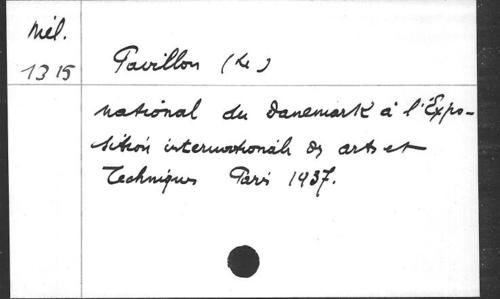 Mél.
1315
Pavillon (Le)
national du Danemark à l'Expo-
sition internationale des arts et
Techniques Paris 1937.